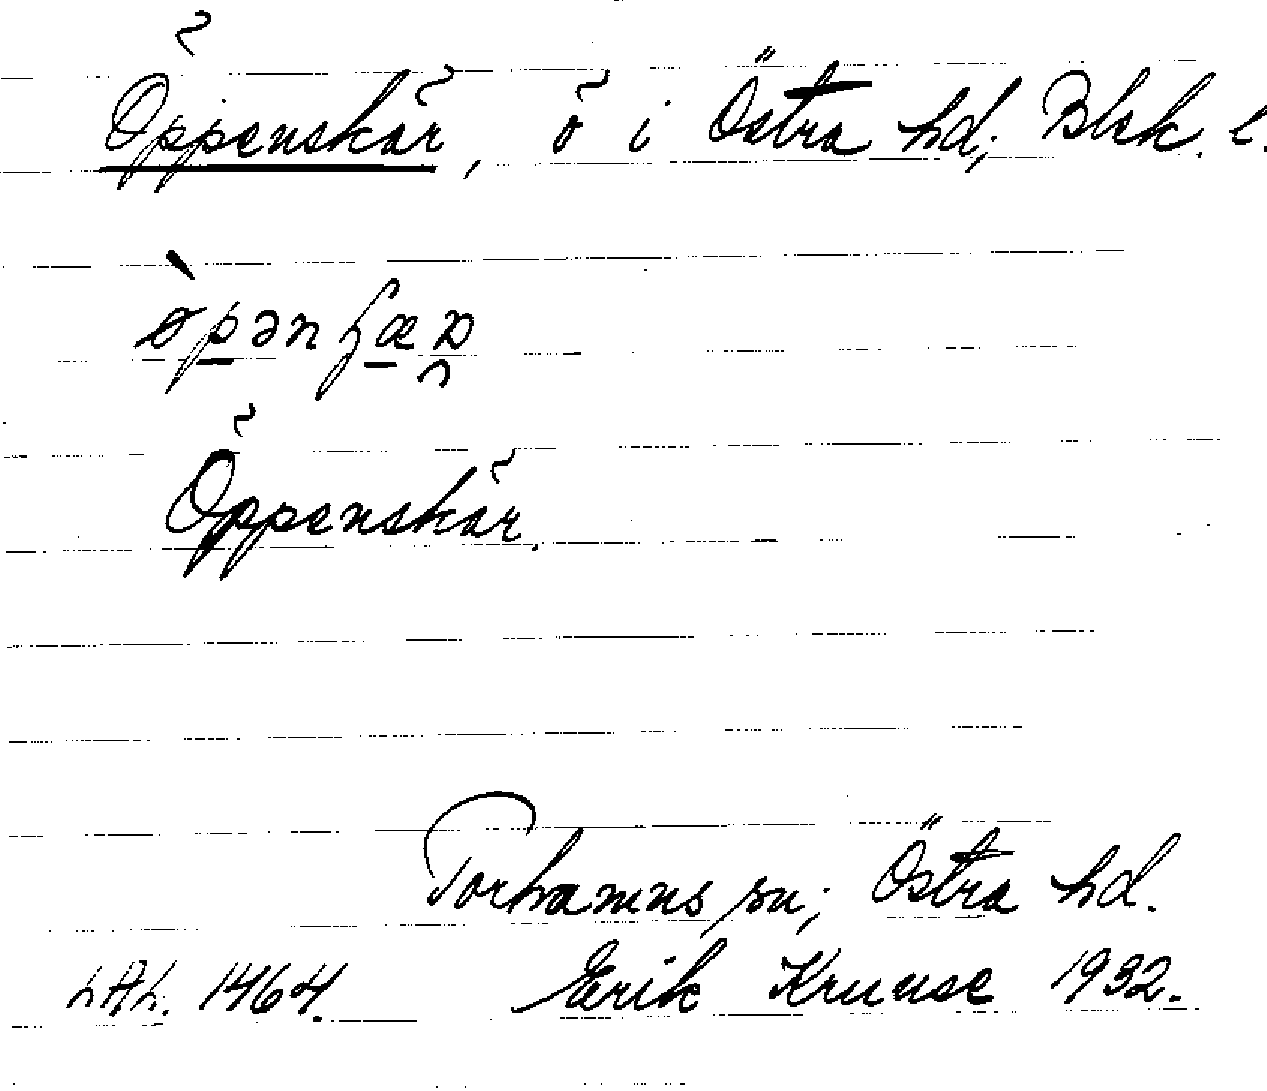 Öppenskär, ö i Östra hd, Blek. l.
Öppenskär.
Torhamns sn, Östra hd.
LAL. 1464. Erik Kruuse 1932.